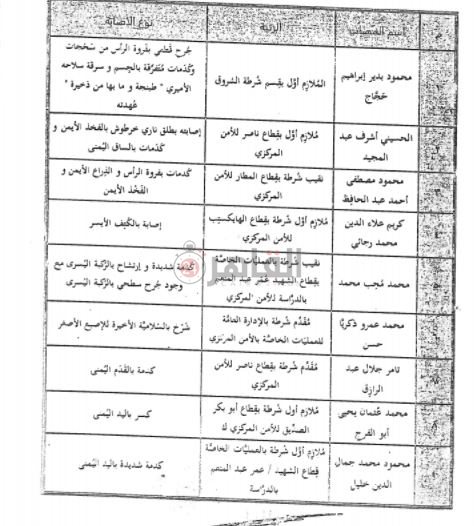 م
اسم المصاب
الرتبة
نوع الإصابة
محمود بدير إبراهيم
حجاج
المُلازم أوَّل بقسم شُرطة الشروق
جُرح قطعي بفروة الرأس من سَحَجات
وكَدَمات مُتفرِّقة بالجِسم و سرقة سلاحه
الأميري " طبنجة و ما بها من ذخيرة "
عُهدته
الحسيني أشرف عبد
المجيد
مُلازم أوَّل بقطاع ناصر للأمن
المركزي
إصابته بطلق ناري خرطوش بالفخذ الأيمن و
كَدَمات بالساق اليُمنى
محمود مصطفى
أحمد عبد الحافظ
نقيب شُرطة بقطاع المطار للأمن
المركزي
كدمات بفروة الرأس و الذراع الأيمن و
الفَخْذ الأيمن
كريم علاء الدين
محمد رجائي
مُلازم أوَّل شُرطة بقطاع الهايكستِب
للأمن المركزي
إصابة بالكَتِف الأيسر
محمد مُجب محمد
نقيب شُرطة بالعمليَّات الخاصَّة
بقطاع الشهيد عُمَر عبد المنعم
بالدرَّاسة للأمن المركزي
كَدمة شديدة و إرتشاح بالرُّكبة اليُسرى مع
وجود جُرح سطحي بالرُّكبة اليُسرى
محمد عمرو ذكريَّا
حسن
مُقدَّم شُرطة بالإدارة العامَّة
للعمليَّات الخاصَّة بالأمن المركزي
شَرْخ بالسُّلامِيَّة الأخيرة للإصبع الأصغر
تامر جلال عبد
الرازق
مُقدَّم شُرطة بقِطاع ناصر للأمن
المركزي
كَدمة بالقَدَم اليُمنى
محمد عُثمان يحيى
أبو الفرح
مُلازم أول شُرطة بقطاع أبو بكر
الصدِّيق للأمن المركزي ك
كَسر باليد اليُمنى
محمود محمد جمال
الدين خليل
مُلازم أوَّل شُرطة بالعمليَّات الخاصَّة
قِطاع الشهيد / عمر عبد المنعم
بالدرَّاسة
كَدمة شديدة باليد اليُمنى
القاهرة